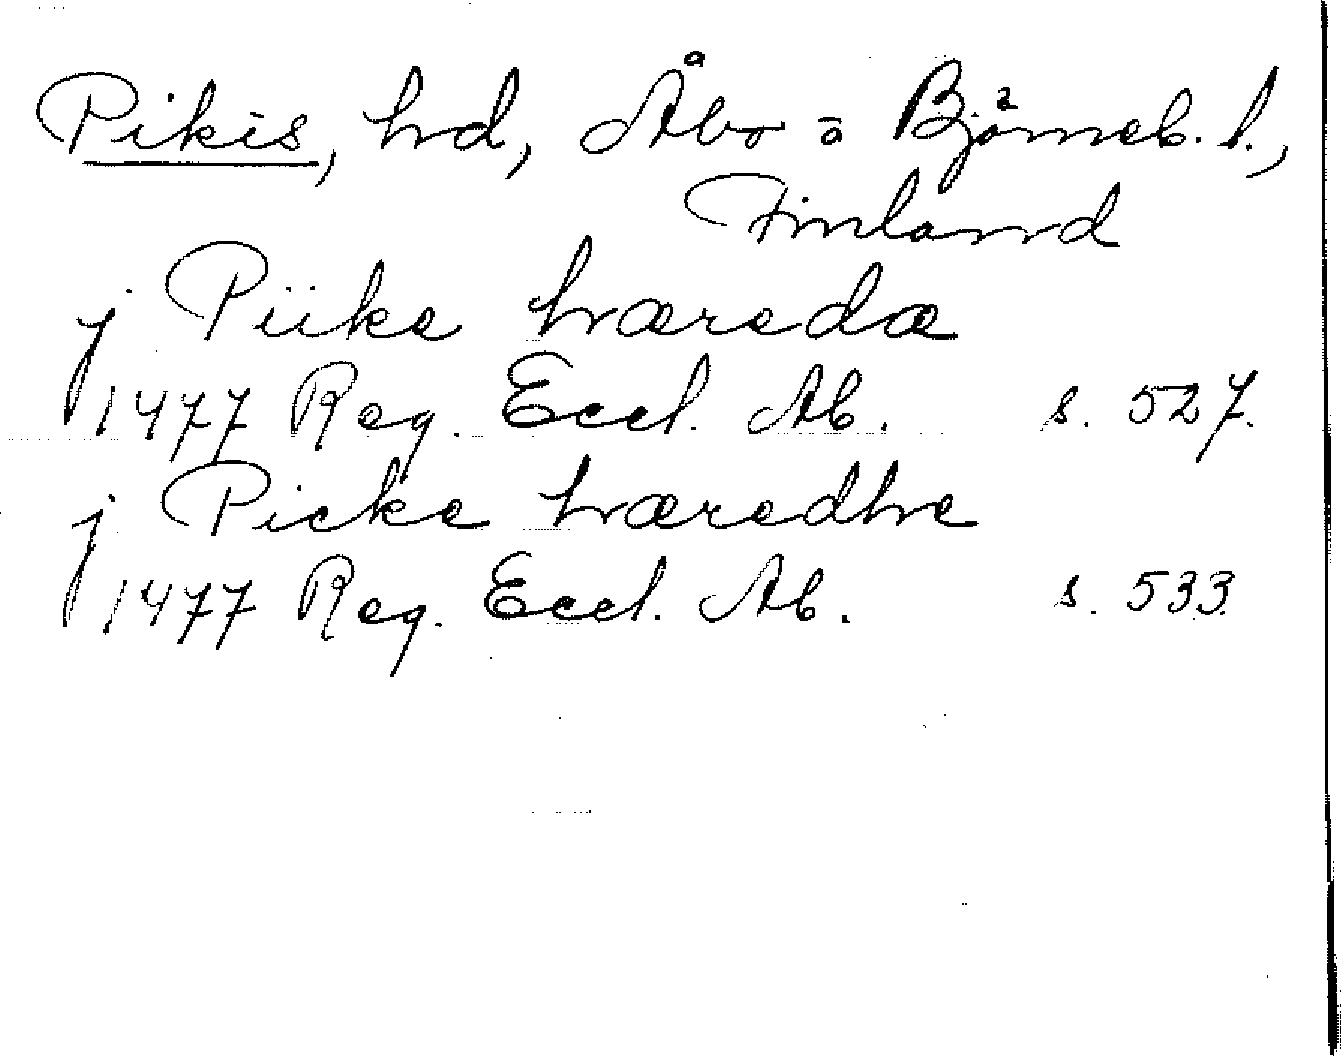 Pikis, hd, Åbo o Björneb. l.,
Finland
j Piike hæredæ
1477 Reg. Eccl. Ab. s. 527.
j Picke hæredhe
1477 Reg. Eccl. Ab. s. 533.